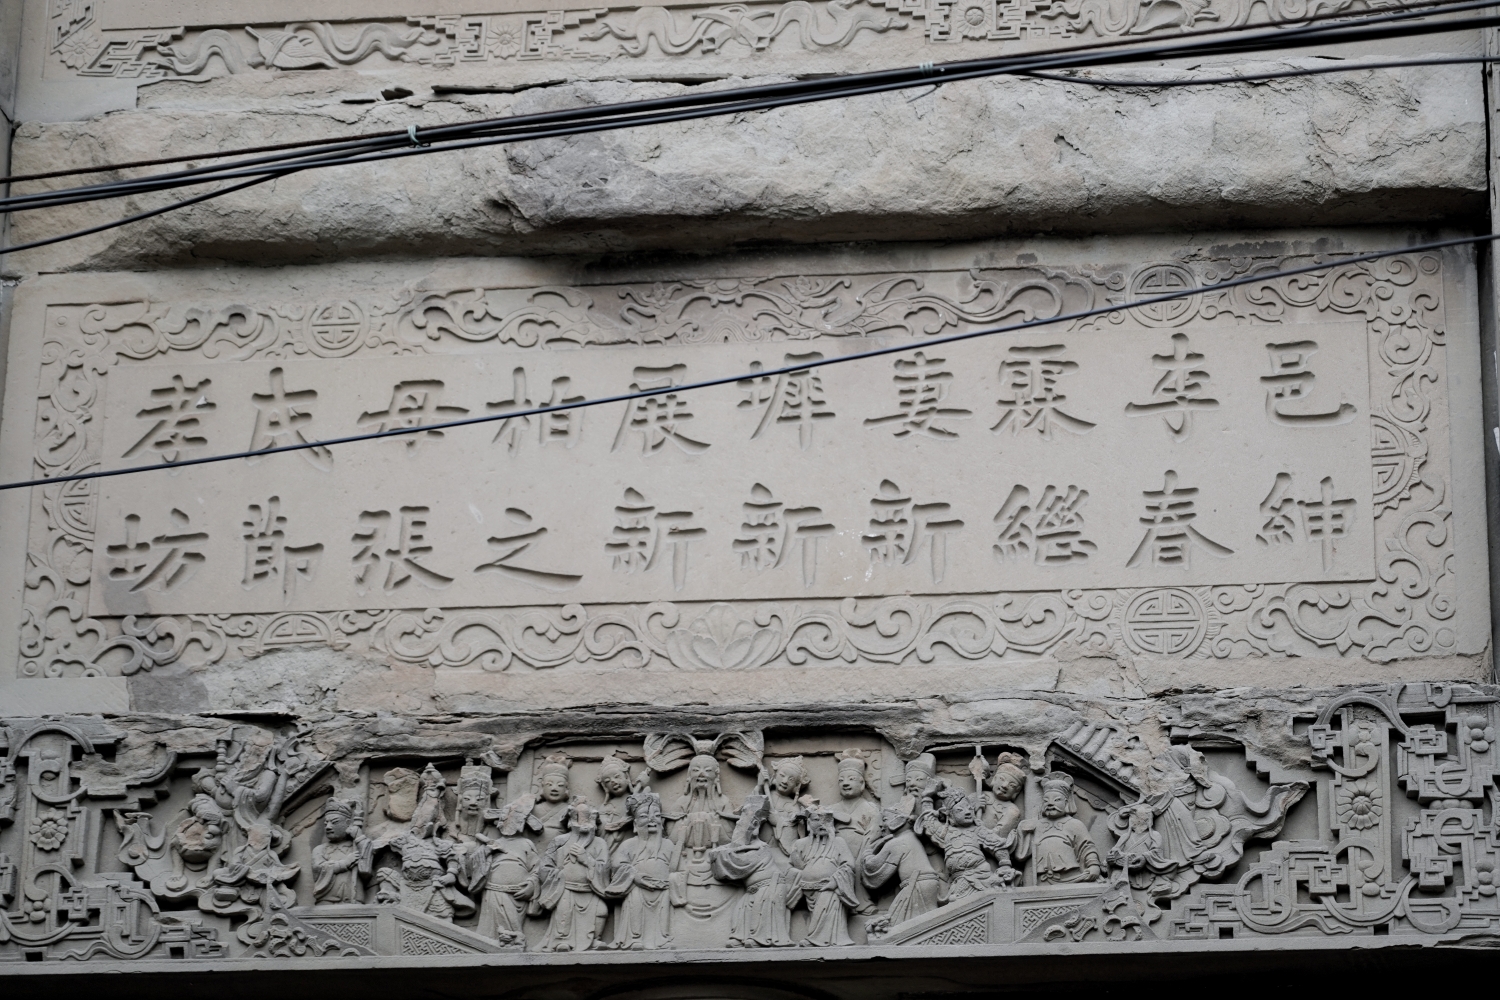 邑紳
李春
霖繼
妻新
墀新
展新
柏之
母張
氏節
孝坊